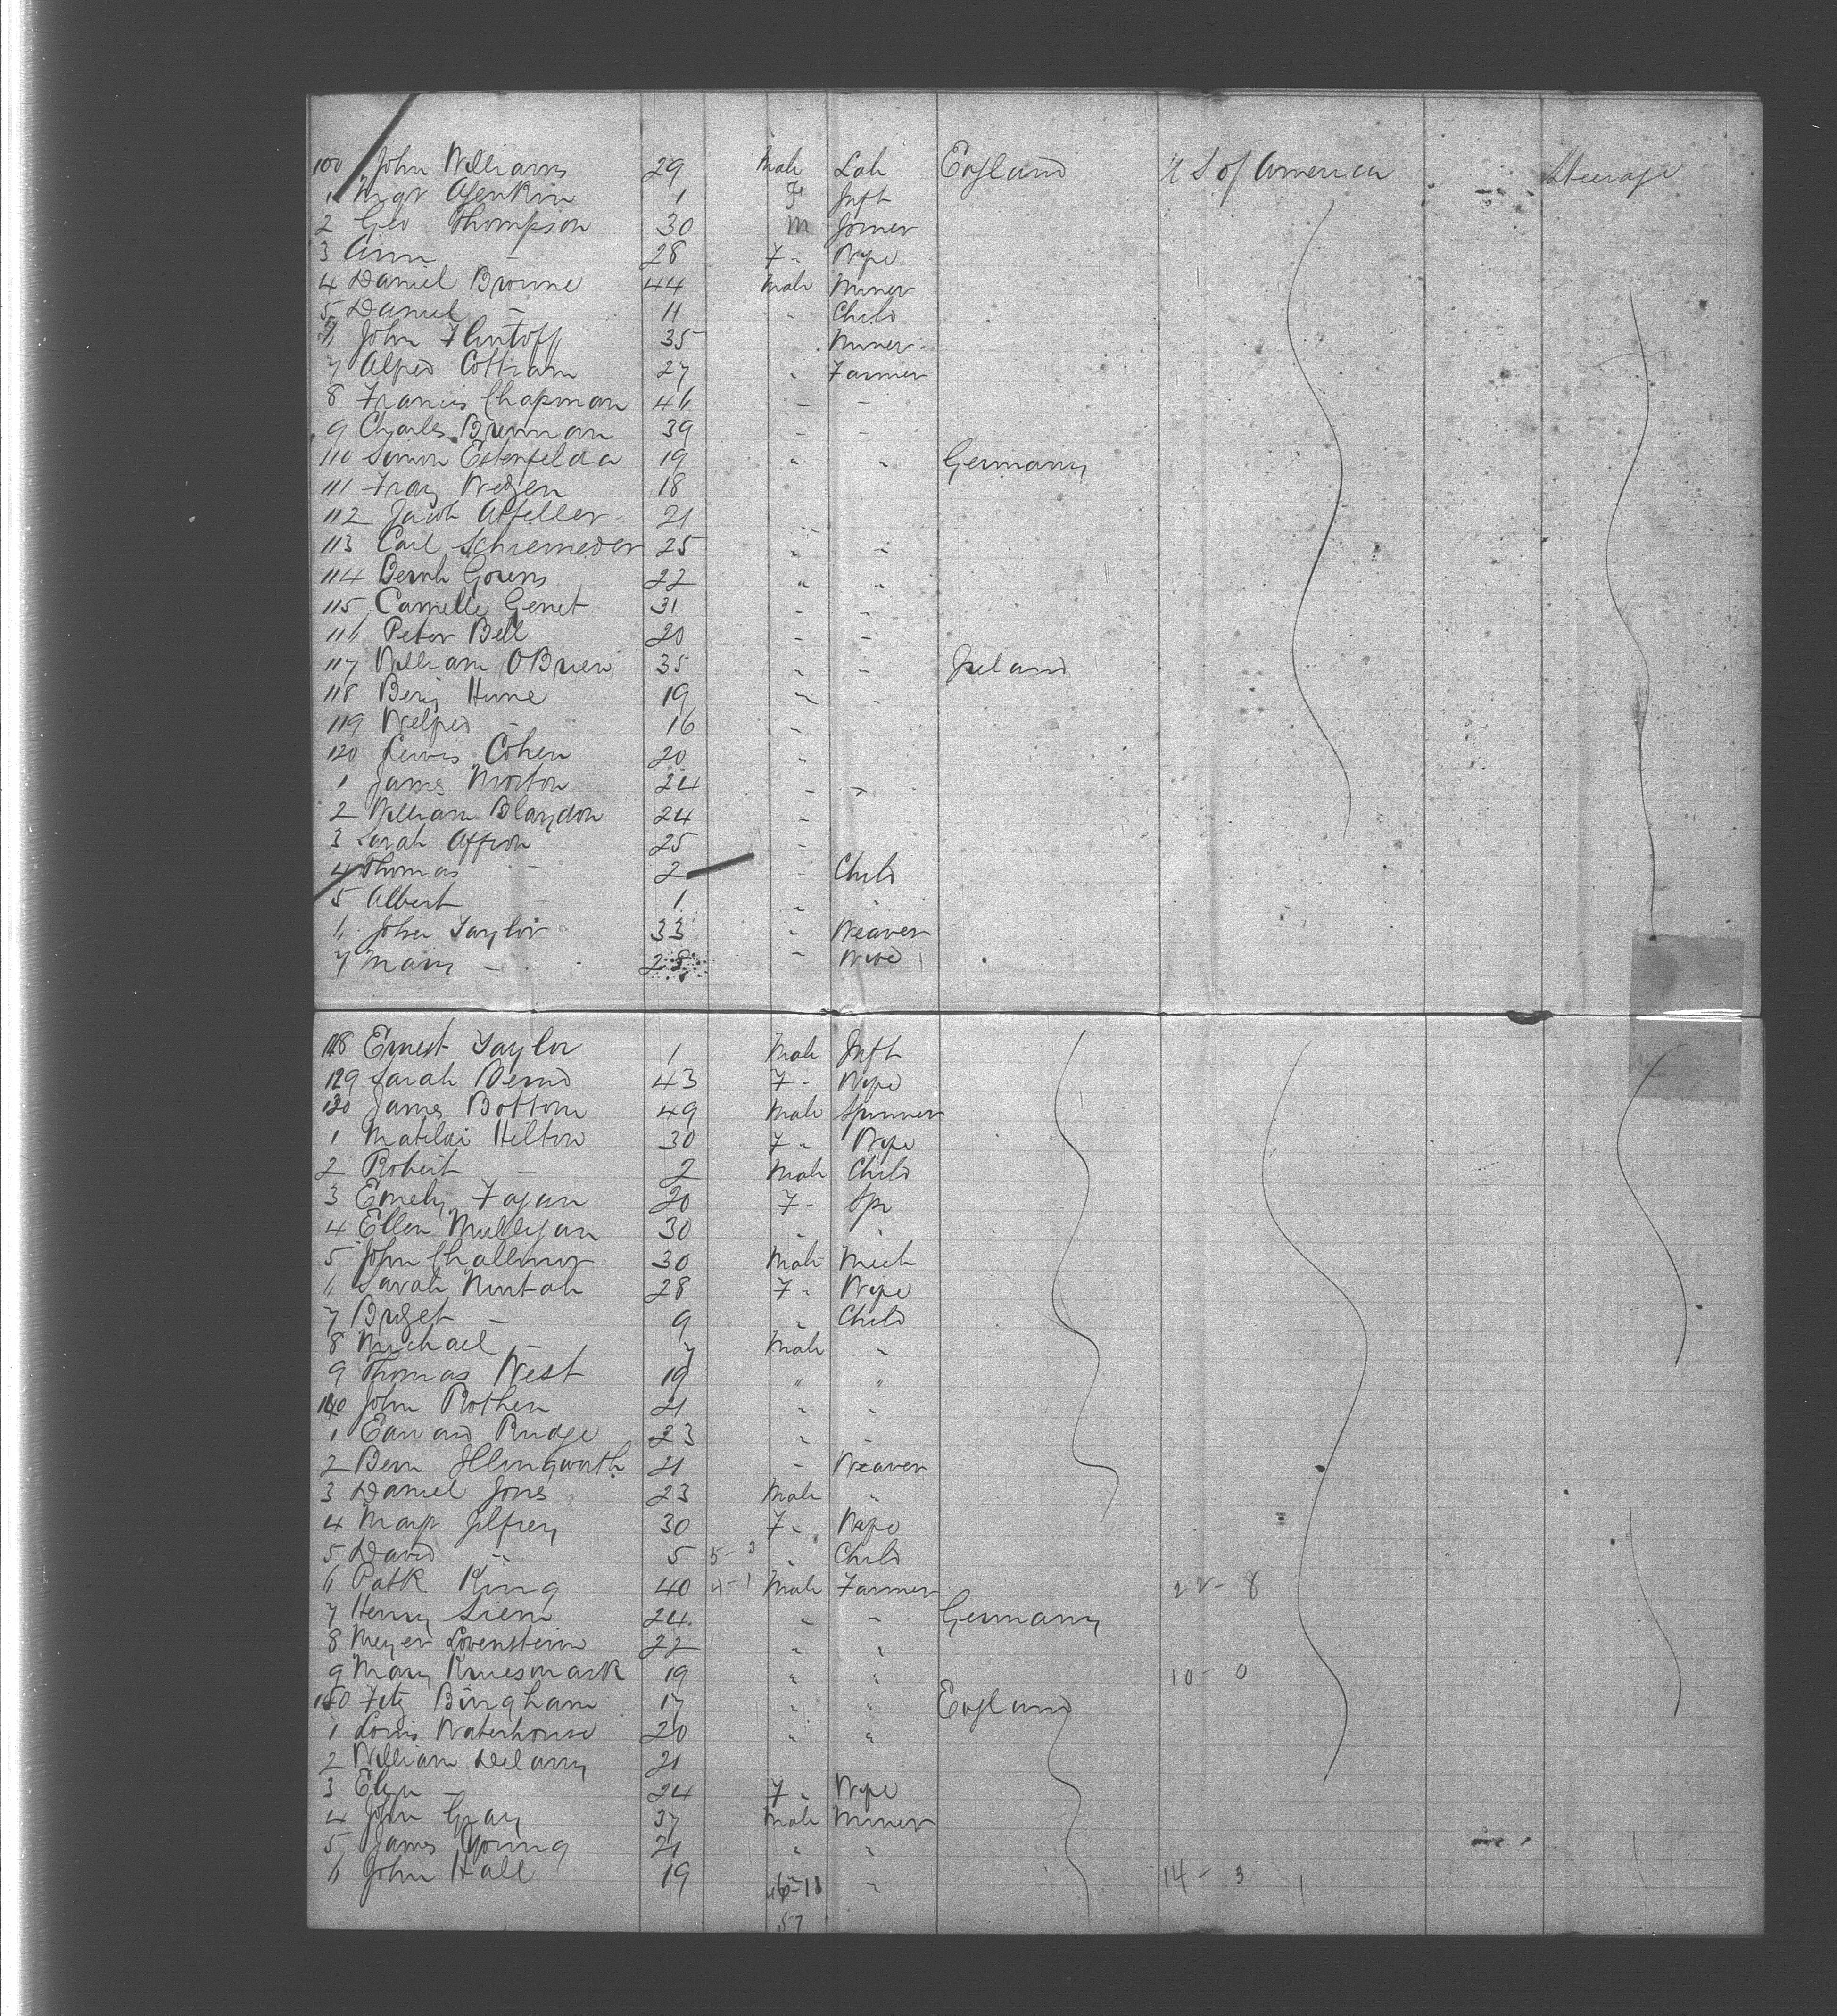 100 John Williams 29 Male Lab England U S of America Steerage
1 Mgr Ajenkin 1 F Inft
2 Geo Thompson 30 M Joiner
3 Ann - 28 F " Wife
4 Daniel Browne 44 Male Miner
5 Daniel - 11 " Child
6 John Flintoff 35 Miner
7 Alfred Cottram 27 " Farmer
8 Francis Chapman 46 " "
9 Charles 39 " "
110 Simon 19 " " Germany
111 Franz 18
112 Jacob 21
113 Carl 25 " "
114 Bernh Gorens 22 " "
115 Camille Genet 31 " "
116 Peter Bell 20 " "
117 William OBrien 35 " " Ireland
118 Benj Hume 19 " "
119 Wilfred - 16 "
120 Lewis Cohen 20 "
1 James Morton 24 " "
2 William Blaydon 24 "
3 Sarah Affron 25 "
4 Thomas - 2 " Child
5 Albert - 1 " "
6 John Taylor 33 " Weaver
7 Mary - 28 " Wife
128 Ernest Taylor 1 Male Inft
129 Sarah 43 F " Wife
130 James Bottom 49 Male Spinner
1 Matilda Hilton 30 F " Wife
2 Robert - 2 Male Child
3 Emely Fagan 20 F " Spr
4 Ellen Mulligan 30 " "
5 John Challinor 30 Male Mech
6 Sarah 28 F " Wife
7 Bridget - 9 " Child
8 Michael - 7 Male "
9 Thomas West 19 " "
140 John Rothen 21 " "
1 Edward Rudge 23 " "
2 Benn Illingworth 21 " Weaver
3 Daniel Jones 23 Male "
4 Margr Jeffrey 30 F " Wife
5 David " 5 5-3 " Child
6 Patk King 40 4-1 Male Farmer 22-8
7 Henry Siem 24 " " Germany
8 Meyer Lovenstein 22 " "
9 Mary 19 " " 10-0
150 Fitz Bingham 17 " " England
1 Louis Waterhouse 20 " "
2 William Delany 21
3 Ellen - 24 F " Wife
4 John Gray 37 Male Miner
5 James Young 21 " "
6 John Hall 19 46-11 " 14-3
57